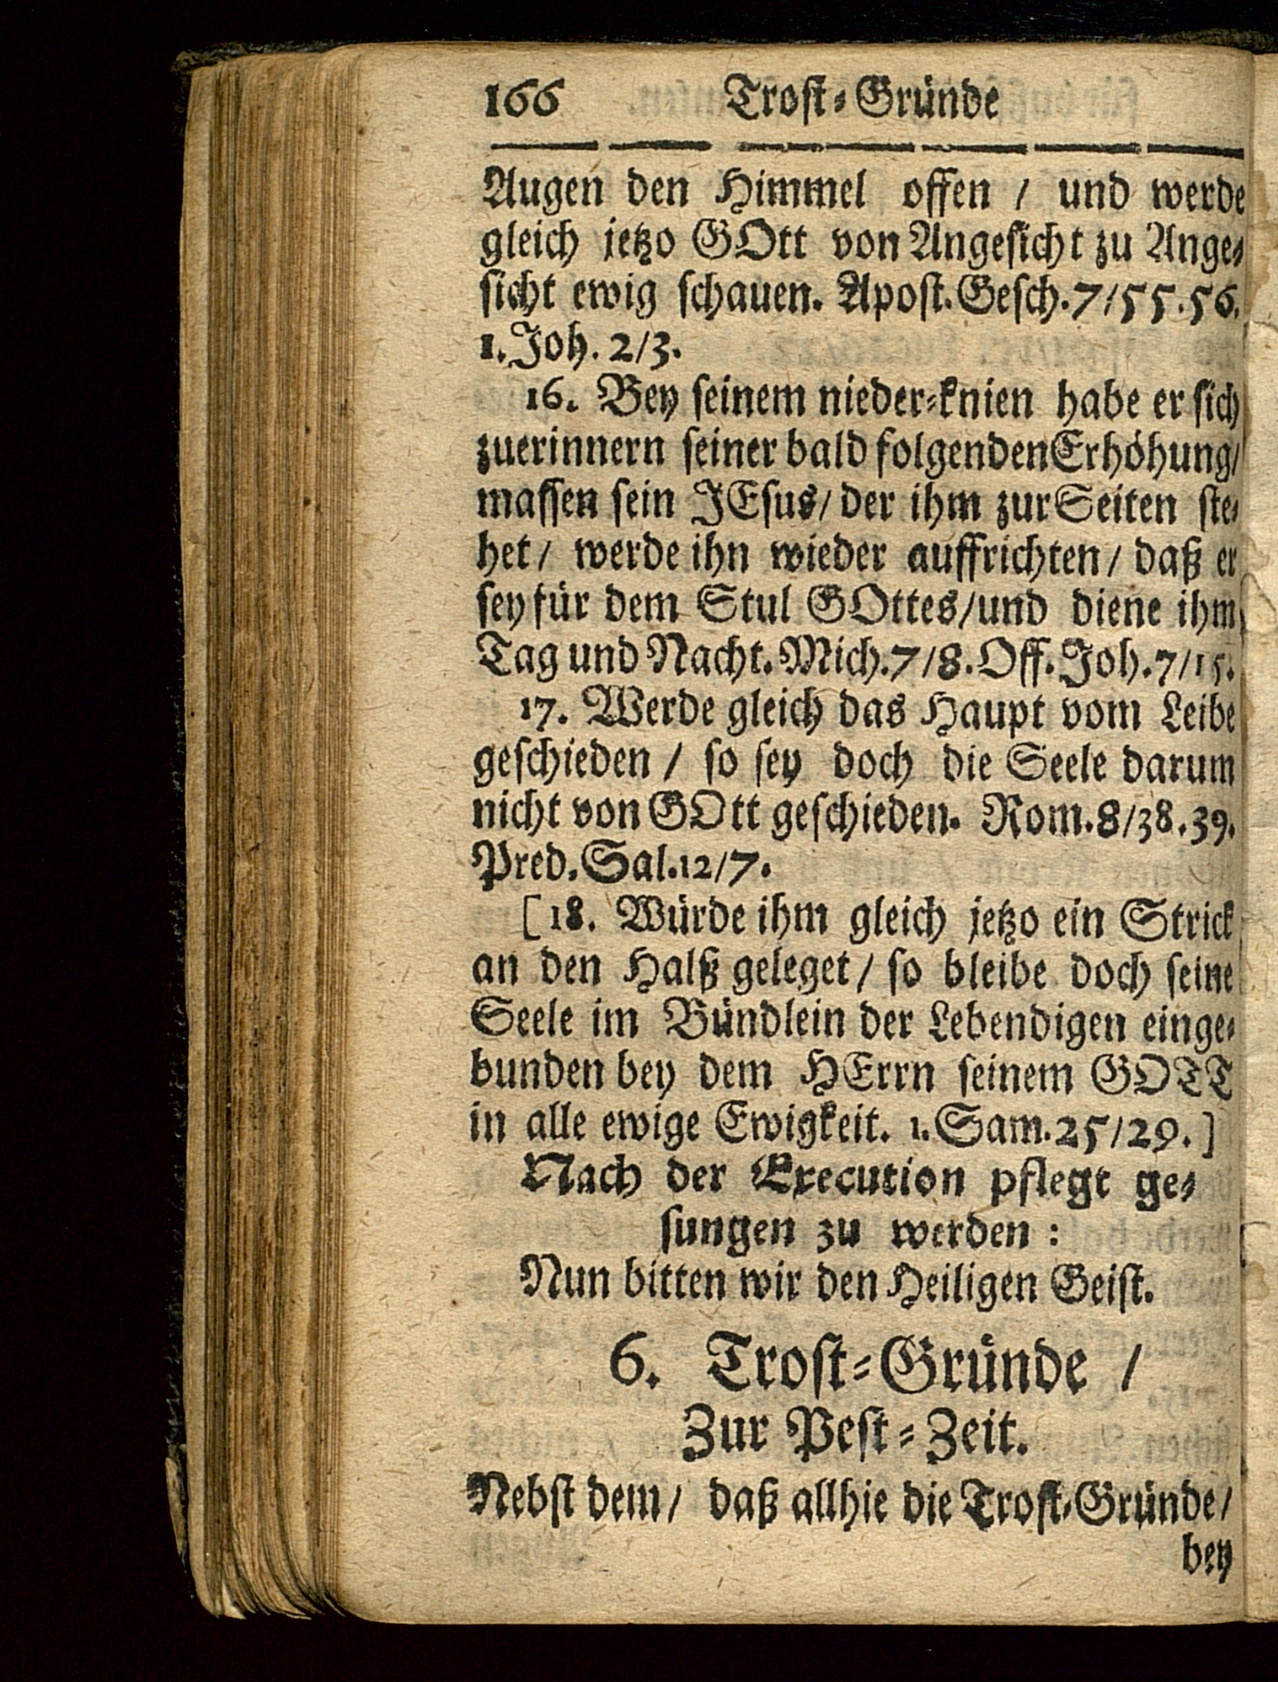 166 Trost-Gründe
Augen den Himmel offen / und werde
gleich jetzo GOtt von Angesicht zu Ange-
sicht ewig schauen. Apost. Gesch. 7/55.56.
1. Joh. 2/3.
16. Bey seinem nieder-knien habe er sich
zuerinnern seiner bald folgenden Erhöhung/
massen sein JEsus/ der ihm zur Seiten ste-
het/ werde ihn wieder auffrichten/ daß er
sey für dem Stul GOttes/und diene ihm
Tag und Nacht. Mich. 7/8. Off. Joh. 7/15.
17. Werde gleich das Haupt vom Leibe
geschieden / so sey doch die Seele darum
nicht von GOtt geschieden. Rom. 8/38.39.
Pred. Sal. 12/7.
[18. Würde ihm gleich jetzo ein Strick
an den Halß geleget/ so bleibe doch seine
Seele im Bündlein der Lebendigen einge-
bunden bey dem HErrn seinem GOTT
in alle ewige Ewigkeit. 1. Sam. 25/29.]
Nach der Execution pflegt ge-
sungen zu werden :
Nun bitten wir den Heiligen Geist.
6. Trost-Gründe /
Zur Pest-Zeit.
Nebst dem/ daß allhie die Trost-Gründe/
bey